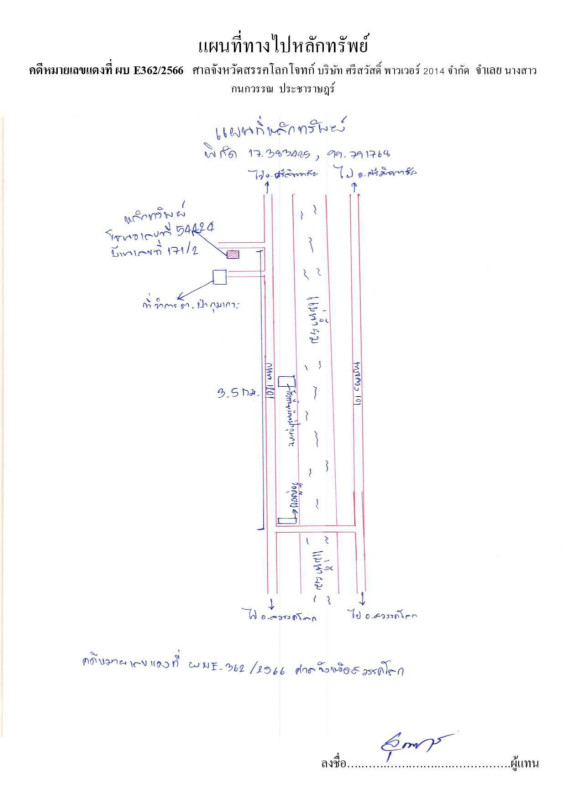 แผนที่ทางไปหลักทรัพย์
คดีหมายเลขแดงที่ ผบ E362/2566 ศาลจังหวัดสวรรคโลกโจทก์ บริษัท ศรีสวัสดิ์ พาวเวอร์ 2014 จำกัด จำเลย นางสาว
กนกวรรณ ประชาราษฎร์
แผนที่หลักทรัพย์
พิกัด
ไป อ.ศรีสัชนาลัย
ไป อ.ศรีสัชนาลัย
หลักทรัพย์
โฉนดเลขที่ 54424
บ้านเลขที่ 171/2
ที่ว่าการ
แม่น้ำยม
3.5 กม.
101
แม่น้ำยม
ไป อ.สวรรคโลก
ไป อ.สวรรคโลก
คดีหมายเลขแดงที่ ผบE.362/2566 ศาลจังหวัดสวรรคโลก
ลงชื่อ............................................ผู้แทน